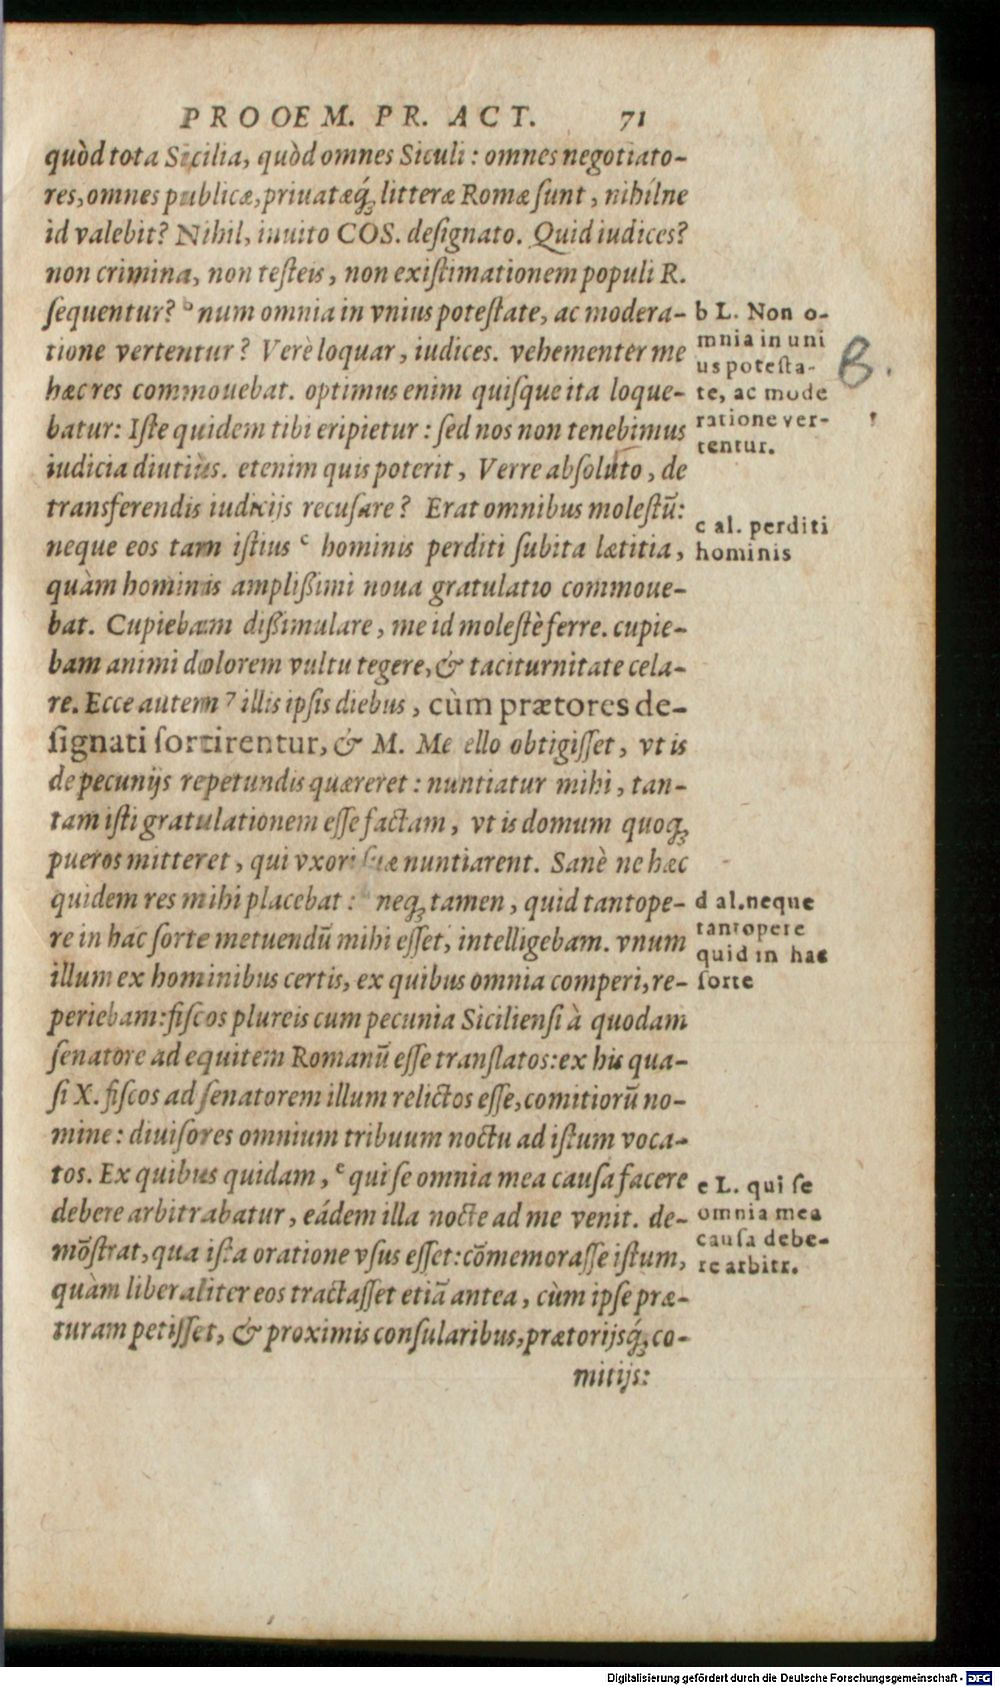 PROOEM. PR. ACT. 71
quòd tota Sicilia, quòd omnes Siculi : omnes negotiato-
res, omnes publicæ, priuatæq́ʒ litteræ Romæ ſunt, nihílne
id valebit? Nihil, inuito COS. deſignato. Quid iudices?
non crimina, non teſteis, non exiſtimationem populi R.
ſequentur? ᵇ num omnia in vnius poteſtate, ac modera-
tione vertentur? Verè loquar, iudices. vehementer me
hæc res commouebat. optimus enim quiſque ita loque-
batur: Iſte quidem tibi eripietur : ſed nos non tenebimus
iudicia diutiùs. etenim quis poterit, Verre abſoluto, de
transferendis iudicijs recuſare? Erat omnibus moleſtũ:
neque eos tam iſtius ᶜ hominis perditi ſubita lætitia,
quàm hominis ampliſſimi noua gratulatio commoue-
bat. Cupiebam diſſimulare, me id moleſtè ferre. cupie-
bam animi dolorem vultu tegere, & taciturnitate cela-
re. Ecce autem ⁊ illis ipſis diebus, cùm prætores de-
ſignati ſortirentur, & M. Me ello obtigiſſet, vt is
de pecunijs repetundis quæreret : nuntiatur mihi, tan-
tam iſti gratulationem eſſe factam, vt is domum quoqʒ
pueros mitteret, qui vxori ſuæ nuntiarent. Sanè ne hæc
quidem res mihi placebat : neqʒ tamen, quid tantope-
re in hac ſorte metuendũ mihi eſſet, intelligebam. vnum
illum ex hominibus certis, ex quibus omnia comperi, re-
periebam: fiſcos plureis cum pecunia Sicilienſi à quodam
ſenatore ad equitem Romanũ eſſe translatos: ex his qua-
ſi X. fiſcos ad ſenatorem illum relictos eſſe, comitiorũ no-
mine : diuiſores omnium tribuum noctu ad iſtum voca-
tos. Ex quibus quidam, ᵉ qui ſe omnia mea cauſa facere
debere arbitrabatur, eádem illa nocte ad me venit. de-
mõſtrat, qua iſta oratione vſus eſſet: cõmemoraſſe iſtum,
quàm liberaliter eos tractaſſet etiã antea, cùm ipſe præ-
turam petiſſet, & proximis conſularibus, prætorijsq́ʒ co-
mitijs:
b L. Non o-
mnia in uni
us poteſta-
te, ac mode
ratione ver-
tentur.
B.
c al. perditi
hominis
d al. neque
tantopere
quid in hac
ſorte
e L. qui ſe
omnia mea
cauſa debe-
re arbitr.
Digitalisierung gefördert durch die Deutsche Forschungsgemeinschaft - DFG